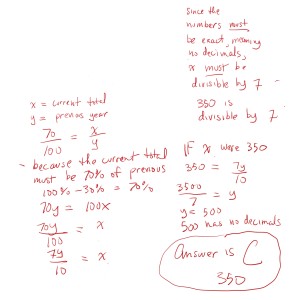 x = current total
y = previous year
70/100 = x/y
- because the current total
must be 70% of previous
100% - 30% = 70%
70y = 100x
70y/100 = x
7y/10 = x
Since the
numbers must
be exact, meaning
no decimals,
x must be
divisible by 7 -
350 is
divisible by 7
If x were 350
350 = 7y/10
3500/7 = y
y = 500
500 has no decimals
Answer is C
350